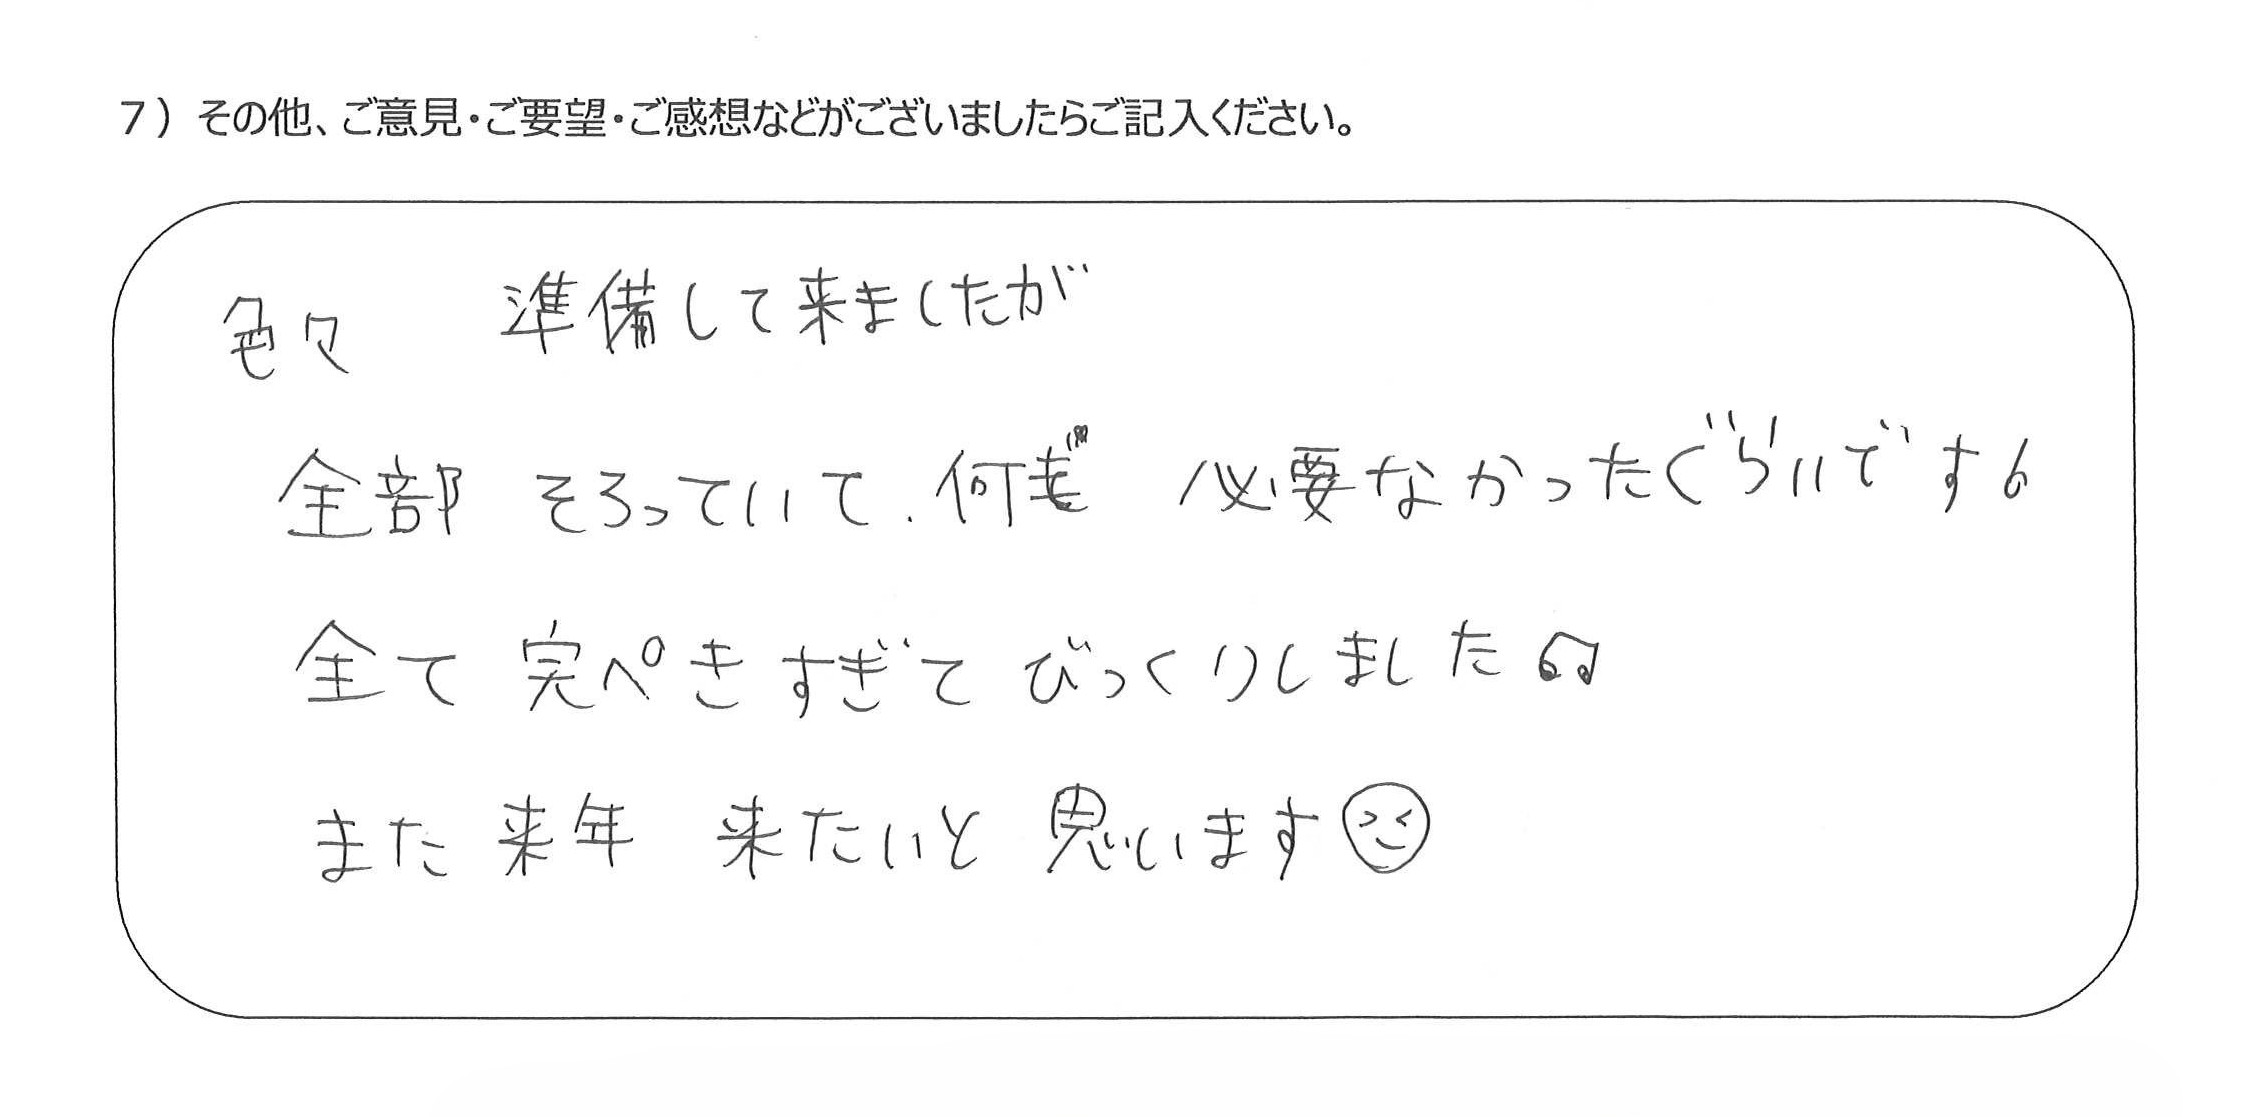 7）その他、ご意見・ご要望・ご感想などがございましたらご記入ください。
色々 準備して来ましたが
全部 そろっていて、何も 必要なかったぐらいです。
全て 完ぺきすぎて びっくりしました♫
また 来年 来たいと 思います